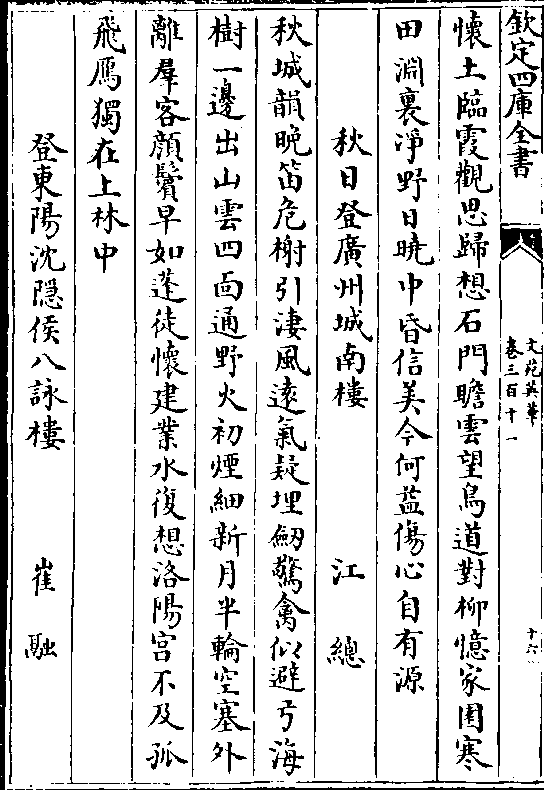 欽定四庫全書
文苑英華
卷三百十一
十六
懷土臨霞觀思歸想石門瞻雲望鳥道對柳憶家園寒
田淵裏淨野日曉中昏信美今何益傷心自有源
秋日登廣州城南樓 江總
秋城韻晚笛危榭引淒風遠氣疑埋劒驚禽似避弓海
樹一邊出山雲四面通野火初煙細新月半輪空塞外
離羣客顔鬢早如蓬徒懷建業水復想洛陽宫不及孤
飛鴈獨在上林中
登東陽沈隠侯八詠樓 崔融